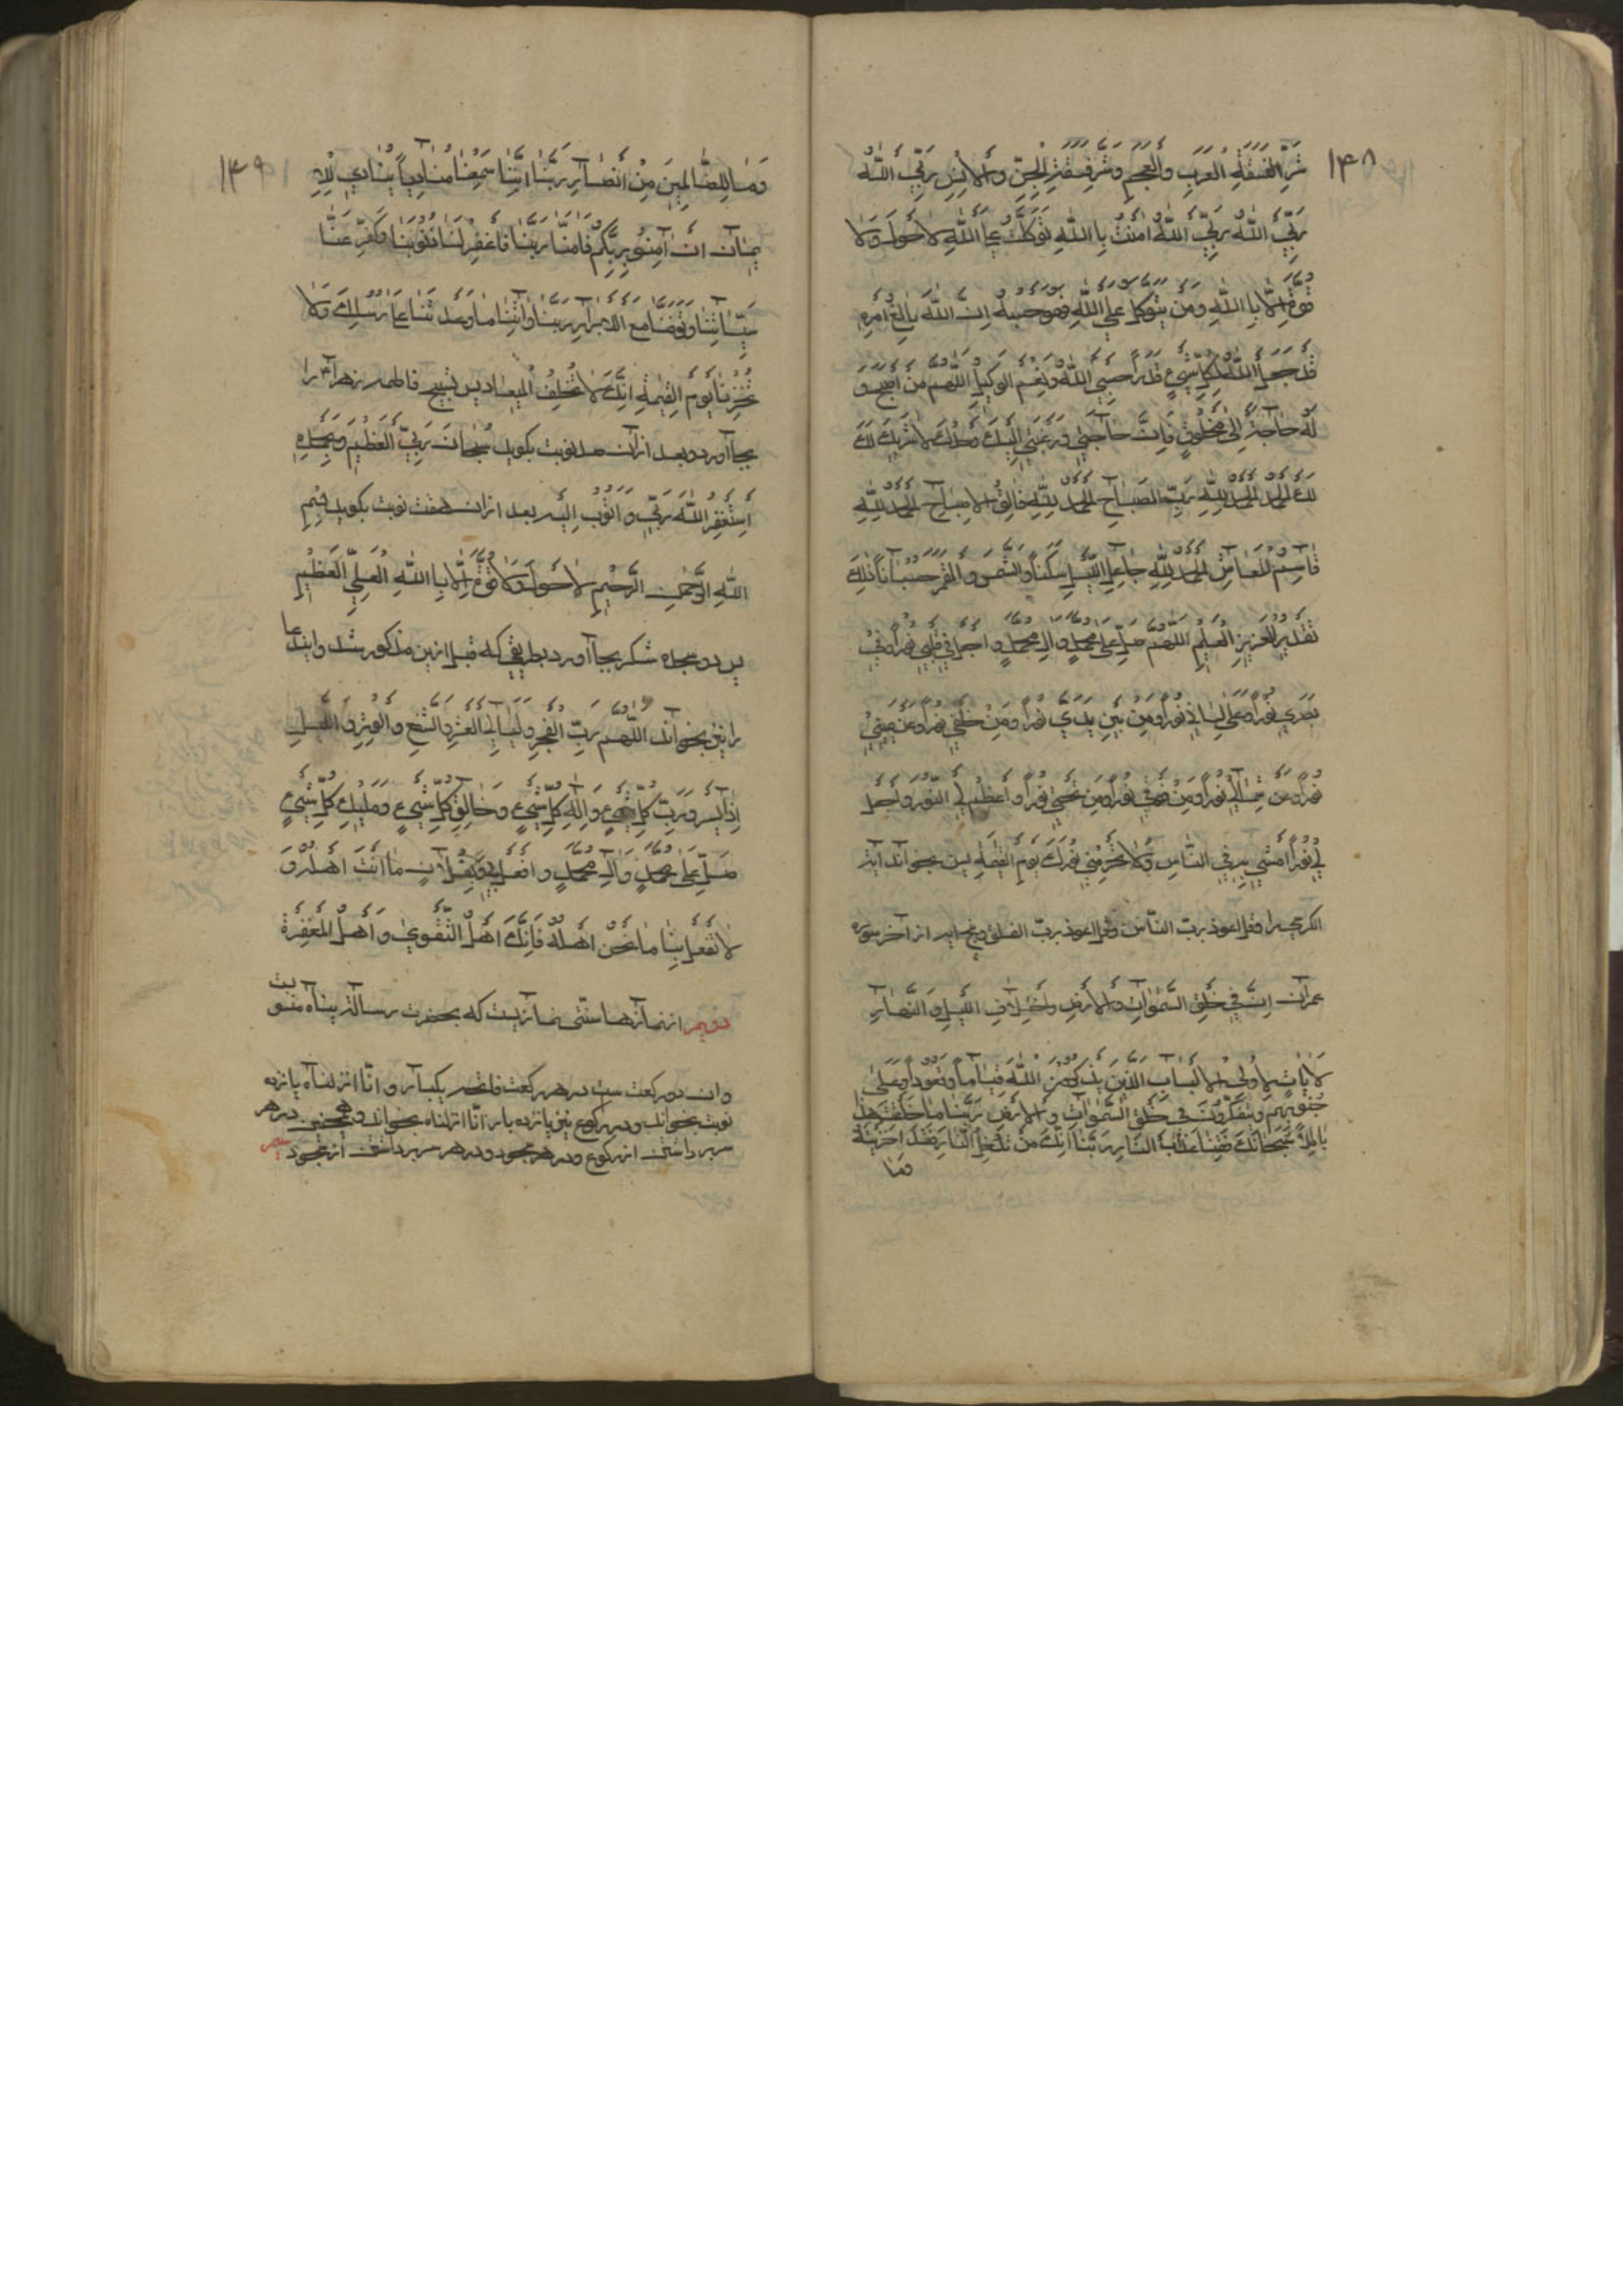 ١٤٨
شَرِّ فَسَقَةِ الْعَرَبِ وَالْعَجَمِ وَشَرِّ فَسَقَةِ الْجِنِّ وَالْاِنْسِ رَبِّيَ اللّٰهُ
رَبِّيَ اللّٰهُ رَبِّيَ اللّٰهُ اٰمَنْتُ بِاللّٰهِ تَوَكَّلْتُ عَلَى اللّٰهِ لَا حَوْلَ وَلَا
قُوَّةَ اِلَّا بِاللّٰهِ وَمَنْ يَتَوَكَّلْ عَلَى اللّٰهِ فَهُوَ حَسْبُهُ اِنَّ اللّٰهَ بَالِغُ اَمْرِهِ
قَدْ جَعَلَ اللّٰهُ لِكُلِّ شَيْءٍ قَدْرًا حَسْبِيَ اللّٰهُ وَنِعْمَ الْوَكِيلُ اللّٰهُمَّ مَنْ اَصْبَحَ وَ
لَهُ حَاجَةٌ اِلٰى مَخْلُوقٍ فَاِنَّ حَاجَتِي وَرَغْبَتِي اِلَيْكَ وَحْدَكَ لَا شَرِيكَ لَكَ
لك الحمد الْحَمْدُ لِلّٰهِ رَبِّ الصَّبَاحِ الْحَمْدُ لِلّٰهِ فَالِقِ الْاِصْبَاحِ الْحَمْدُ لِلّٰهِ
قَاسِمِ الْمَعَاشِ الْحَمْدُ لِلّٰهِ جَاعِلِ اللَّيْلِ سَكَنًا وَالشَّمْسَ وَالْقَمَرَ حُسْبَانًا ذٰلِكَ
تَقْدِيرُ الْعَزِيزِ الْعَلِيمِ اللّٰهُمَّ صَلِّ عَلٰى مُحَمَّدٍ وَاٰلِ مُحَمَّدٍ وَاجْعَلْ فِي قَلْبِي نُورًا وَفِي
بَصَرِي نُورًا وَعَلٰى لِسَانِي نُورًا وَمِنْ بَيْنِ يَدَيَّ نُورًا وَمِنْ خَلْفِي نُورًا وَعَنْ يَمِينِي
نُورًا وَعَنْ شِمَالِي نُورًا وَمِنْ فَوْقِي نُورًا وَمِنْ تَحْتِي نُورًا وَاَعْظِمْ لِيَ النُّورَ وَاجْعَلْ
لِي نُورًا اَمْشِي بِهِ فِي النَّاسِ وَلَا تَحْرِمْنِي نُورَكَ يَوْمَ الْقِيٰمَةِ پس بخواند آیة
الکرسی را وقل اعوذ بربّ النّاس وقل اعوذ بربّ الفلق وپنج آیه از آخر سوره
عمران اِنَّ فِي خَلْقِ السَّمٰوَاتِ وَالْاَرْضِ وَاخْتِلَافِ اللَّيْلِ وَالنَّهَارِ
لَاٰيَاتٍ لِاُولِي الْاَلْبَابِ الَّذِينَ يَذْكُرُونَ اللّٰهَ قِيَامًا وَقُعُودًا وَعَلٰى
جُنُوبِهِمْ وَيَتَفَكَّرُونَ فِي خَلْقِ السَّمٰوَاتِ وَالْاَرْضِ رَبَّنَا مَا خَلَقْتَ هٰذَا
بَاطِلًا سُبْحَانَكَ فَقِنَا عَذَابَ النَّارِ رَبَّنَا اِنَّكَ مَنْ تُدْخِلِ النَّارَ فَقَدْ اَخْزَيْتَهُ
وما
١٤٩
وَمَا لِلظَّالِمِينَ مِنْ اَنْصَارٍ رَبَّنَا اِنَّنَا سَمِعْنَا مُنَادِيًا يُنَادِي لِلْاِ
يمَانِ اَنْ اٰمِنُوا بِرَبِّكُمْ فَاٰمَنَّا رَبَّنَا فَاغْفِرْ لَنَا ذُنُوبَنَا وَكَفِّرْ عَنَّا
سَيِّئَاتِنَا وَتَوَفَّنَا مَعَ الْاَبْرَارِ رَبَّنَا وَاٰتِنَا مَا وَعَدْتَنَا عَلٰى رُسُلِكَ وَلَا
تُخْزِنَا يَوْمَ الْقِيٰمَةِ اِنَّكَ لَا تُخْلِفُ الْمِيعَادَ پس تسبیح فاطمه زهرا را
بجا آورد وبعد ازان صد نوبت بکوید سُبْحَانَ رَبِّيَ الْعَظِيمِ وَبِحَمْدِهِ
اَسْتَغْفِرُ اللّٰهَ رَبِّي وَاَتُوبُ اِلَيْهِ بعد ازان هفت نوبت بکوید بِسْمِ
اللّٰهِ الرَّحْمٰنِ الرَّحِيمِ لَا حَوْلَ وَلَا قُوَّةَ اِلَّا بِاللّٰهِ الْعَلِيِّ الْعَظِيمِ
پس دو سجده شکر بجا آورد بطریقی که قبل ازین مذکور شد واین دعا
را نیز بخواند اللّٰهُمَّ رَبَّ الْفَجْرِ وَلَيَالٍ الْعَشْرِ وَالشَّفْعِ وَالْوَتْرِ وَاللَّيْلِ
اِذَا يَسْرِ وَرَبَّ كُلِّ شَيْءٍ وَاِلٰهَ كُلِّ شَيْءٍ وَخَالِقَ كُلِّ شَيْءٍ وَمَلِيكَ كُلِّ شَيْءٍ
صَلِّ عَلٰى مُحَمَّدٍ وَاٰلِ مُحَمَّدٍ وَافْعَلْ بِي وَبِفُلَانٍ مَا اَنْتَ اَهْلُهُ وَ
لَا تَفْعَلْ بِنَا مَا نَحْنُ اَهْلُهُ فَاِنَّكَ اَهْلُ التَّقْوٰى وَاَهْلُ الْمَغْفِرَةِ
دویم از نمازها سنتی نمازیست که بحضرت رسالة پناه منسوبست
وان دو رکعت ست در هر رکعت فاتحه یکبار و انّا انزلناه پانزده
نوبت بخواند ودر رکوع نیز پانزده بار انّا انزلناه بخواند وهمچنین در هر
سر برداشتن از رکوع ودر هر سجود ودر هر سر برداشتن از سجود